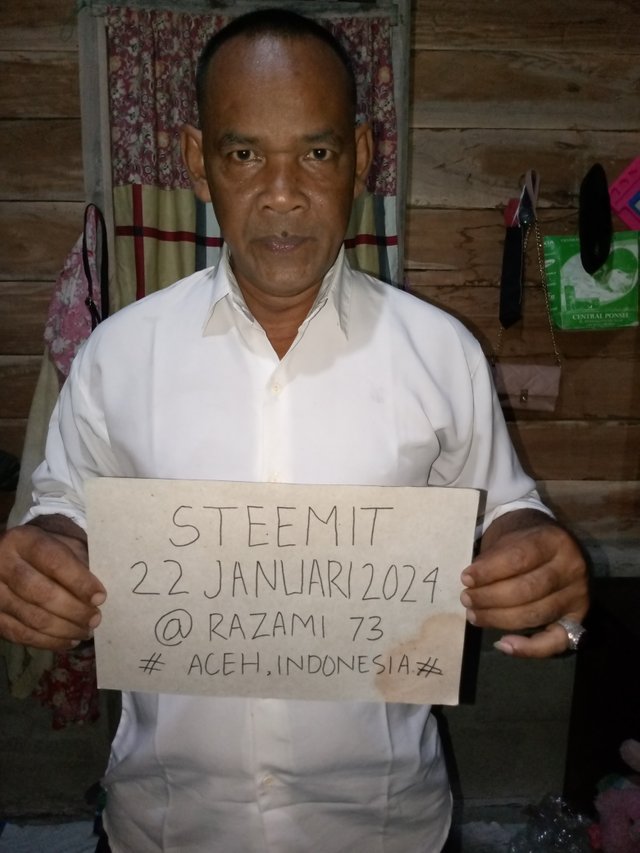 STEEMIT
22 JANUARI 2024
@ RAZAMI 73
# ACEH, INDONESIA #
CENTRAL PONSEL